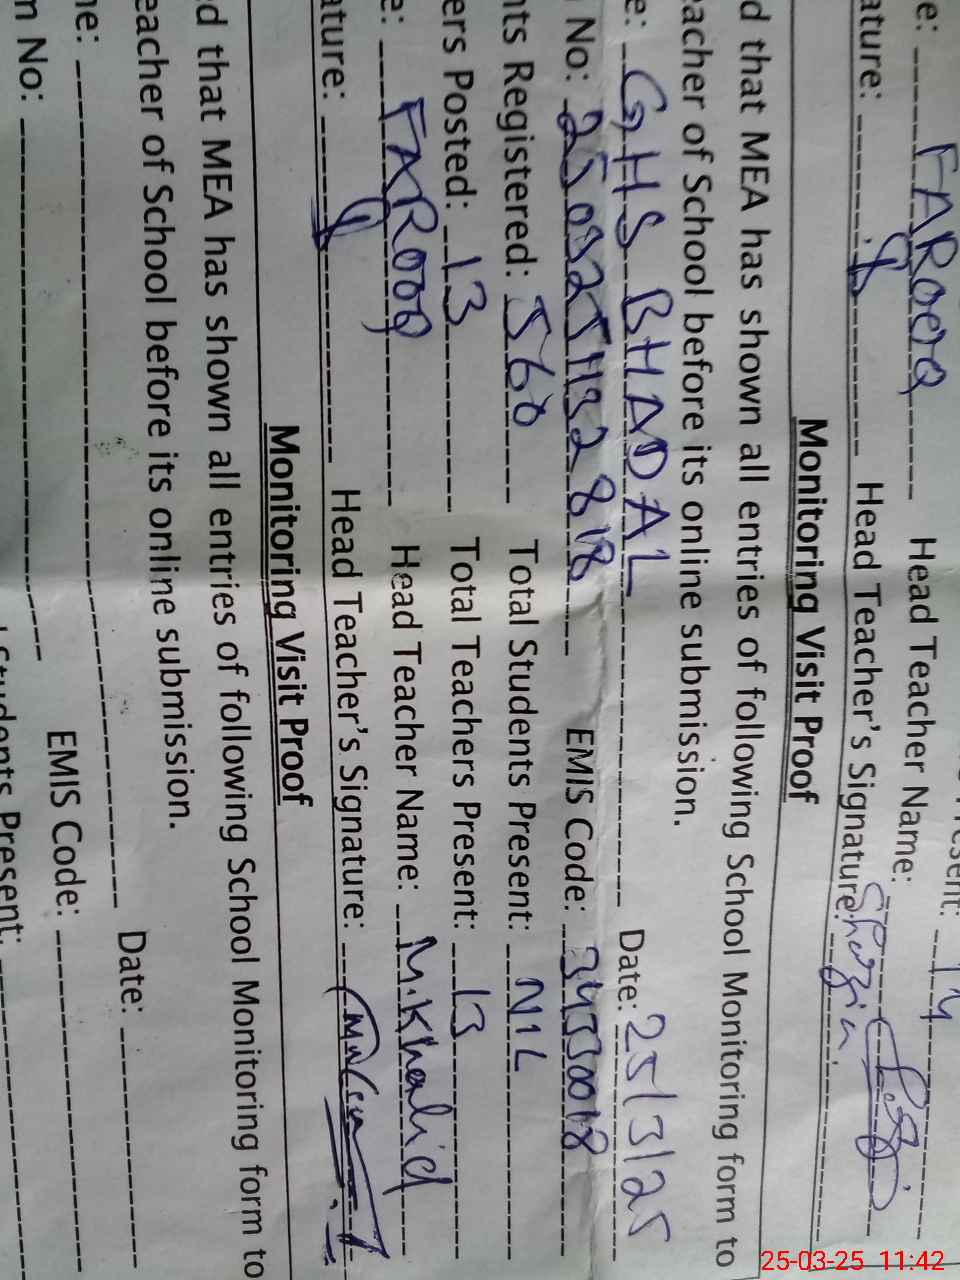 resent: 14
e: FAROOQ Head Teacher Name: Shazia
ature: Head Teacher's Signature:
Monitoring Visit Proof
d that MEA has shown all entries of following School Monitoring form to
eacher of School before its online submission.
e: GHS BHADAL Date: 25/3/25
No: EMIS Code:
nts Registered: 560 Total Students Present: NIL
ers Posted: 13 Total Teachers Present: 13
e: FAROOQ Head Teacher Name: M.Khalid
ature: Head Teacher's Signature:
Monitoring Visit Proof
d that MEA has shown all entries of following School Monitoring form to
eacher of School before its online submission.
ne: Date:
n No: EMIS Code:
Students Present:
25-03-25 11:42